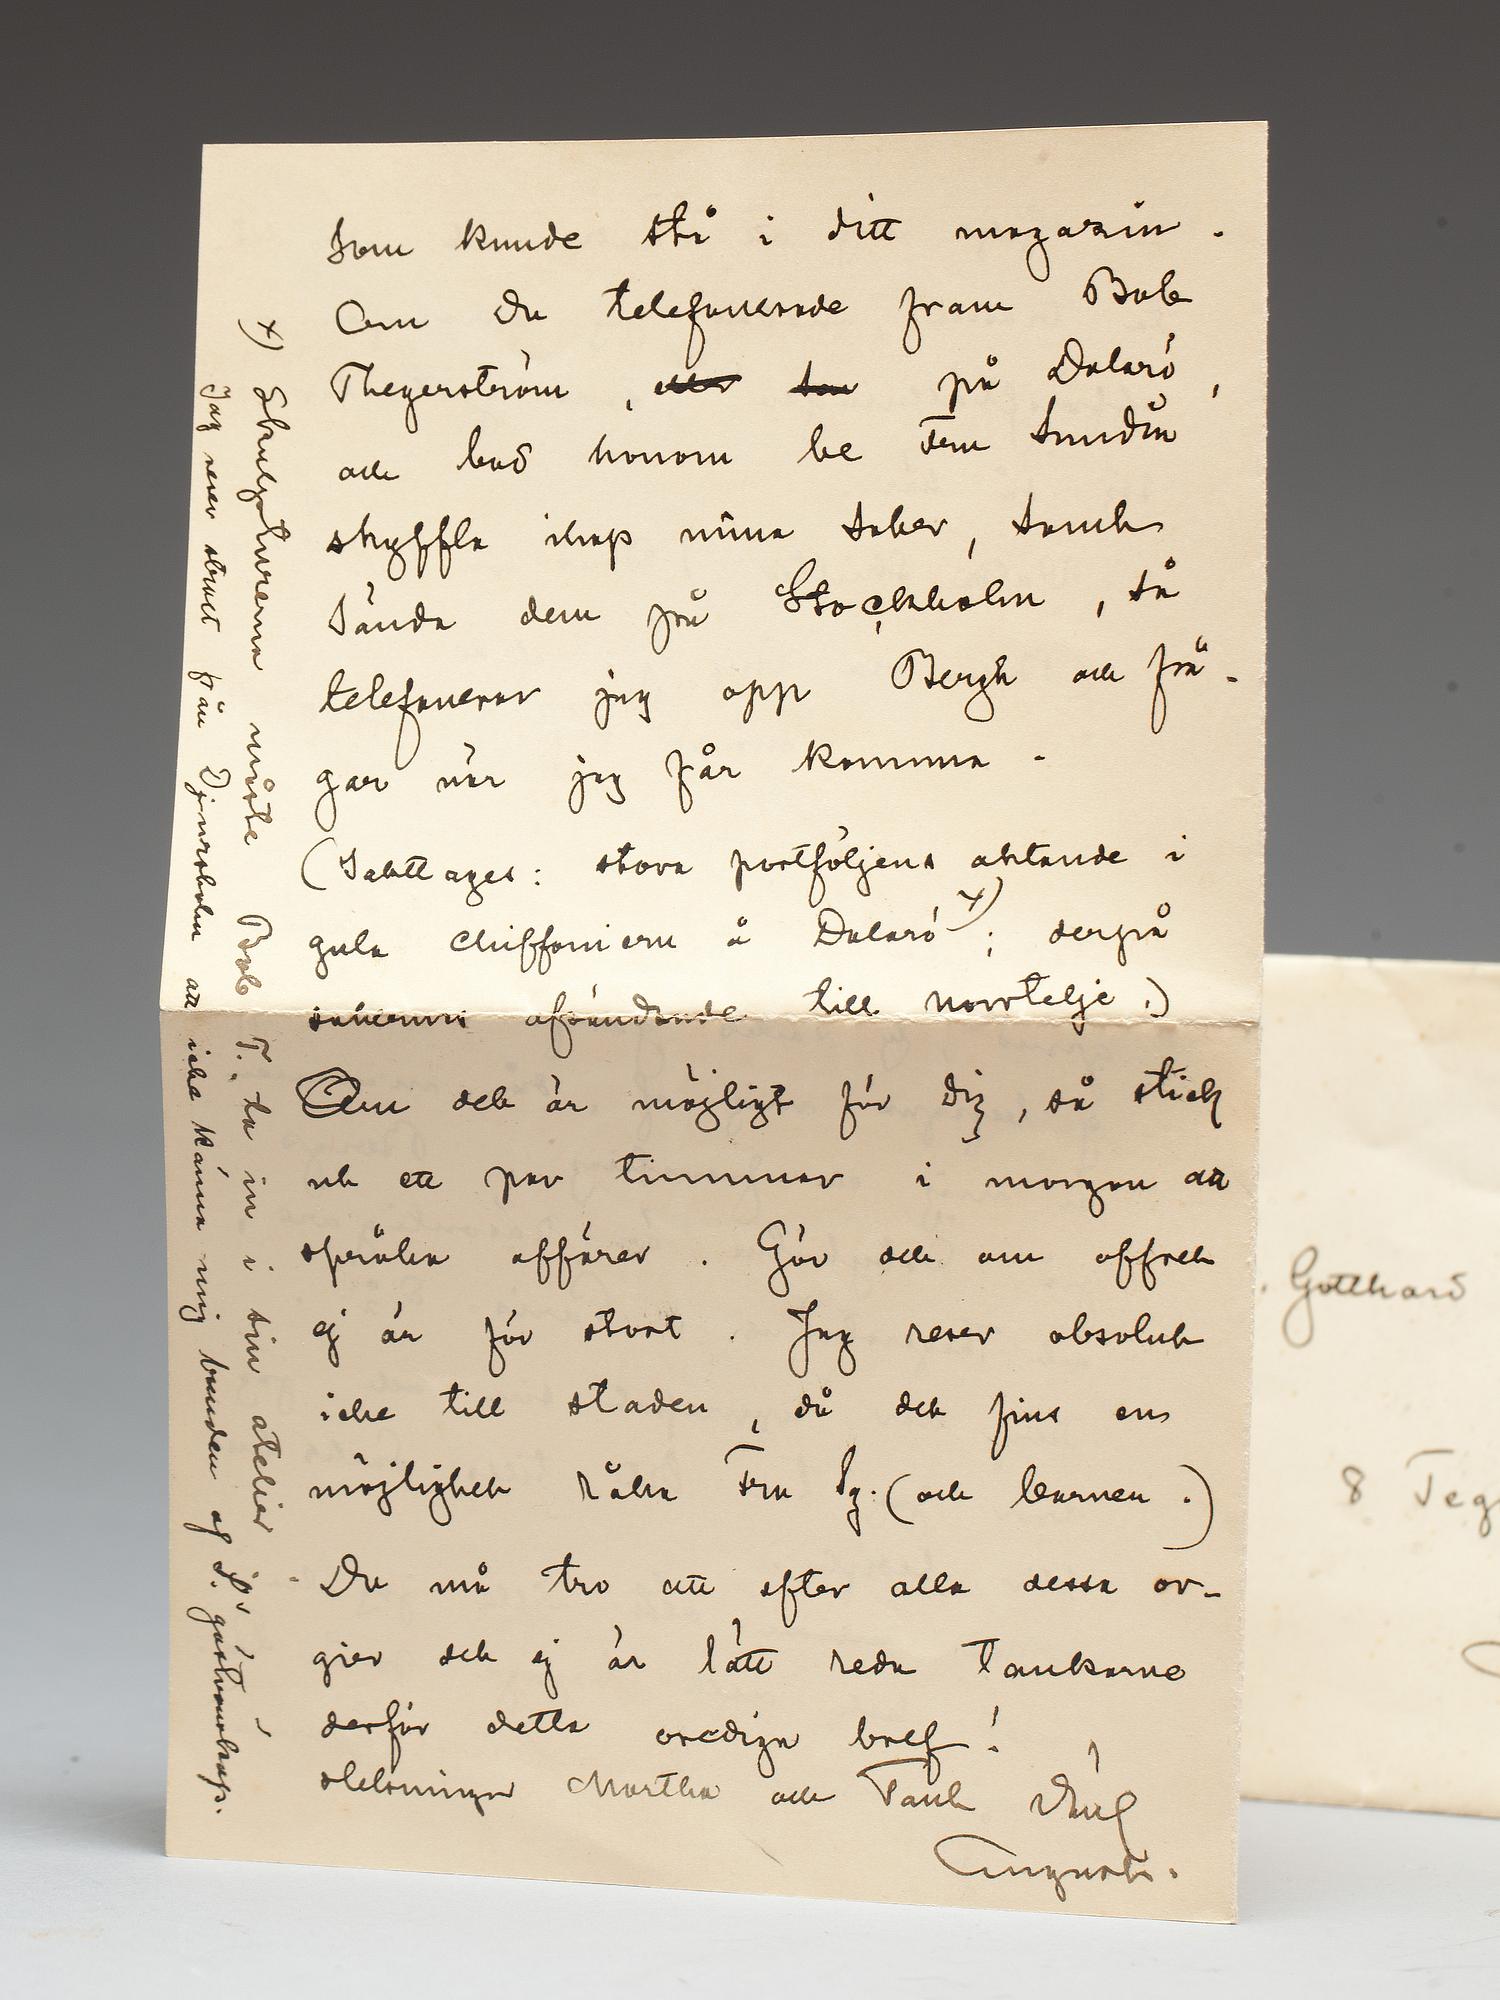 som kunde stå i ditt magazin.
Om du telefonerade fram Bob
Thegerström, eller som på Dalarö,
och bad honom be Fru Sundin
skyffla ihop mina saker, samt
sända dem på Stockholm, så
telefonerar jag opp Bergh och frå-
gar när jag får komma.
(Iakttages: stora portföljens aktande i
gula chiffoniern å Dalarö x); derpå
afsändande till Norrtelje.)
Om det är möjligt för dig, så stick
ut ett par timmar i morgon att
språka affärer. Gör det om offret
ej är för stort. Jag reser absolut
icke till staden, då det fins en
möjlighet råka Fru Sg. (och barnen.)
Du må tro att efter alla dessa or-
gier det ej är lätt reda tankarne
derför detta orediga bref!
Helsningar Martha och Faub
August.
x) Skulpturerna måste Bob T. ta in i sin atelier.
Jag reser strax från Djursholm att icke känna mig bunden af L's gästvänskap.
Gotthard
8 Teg